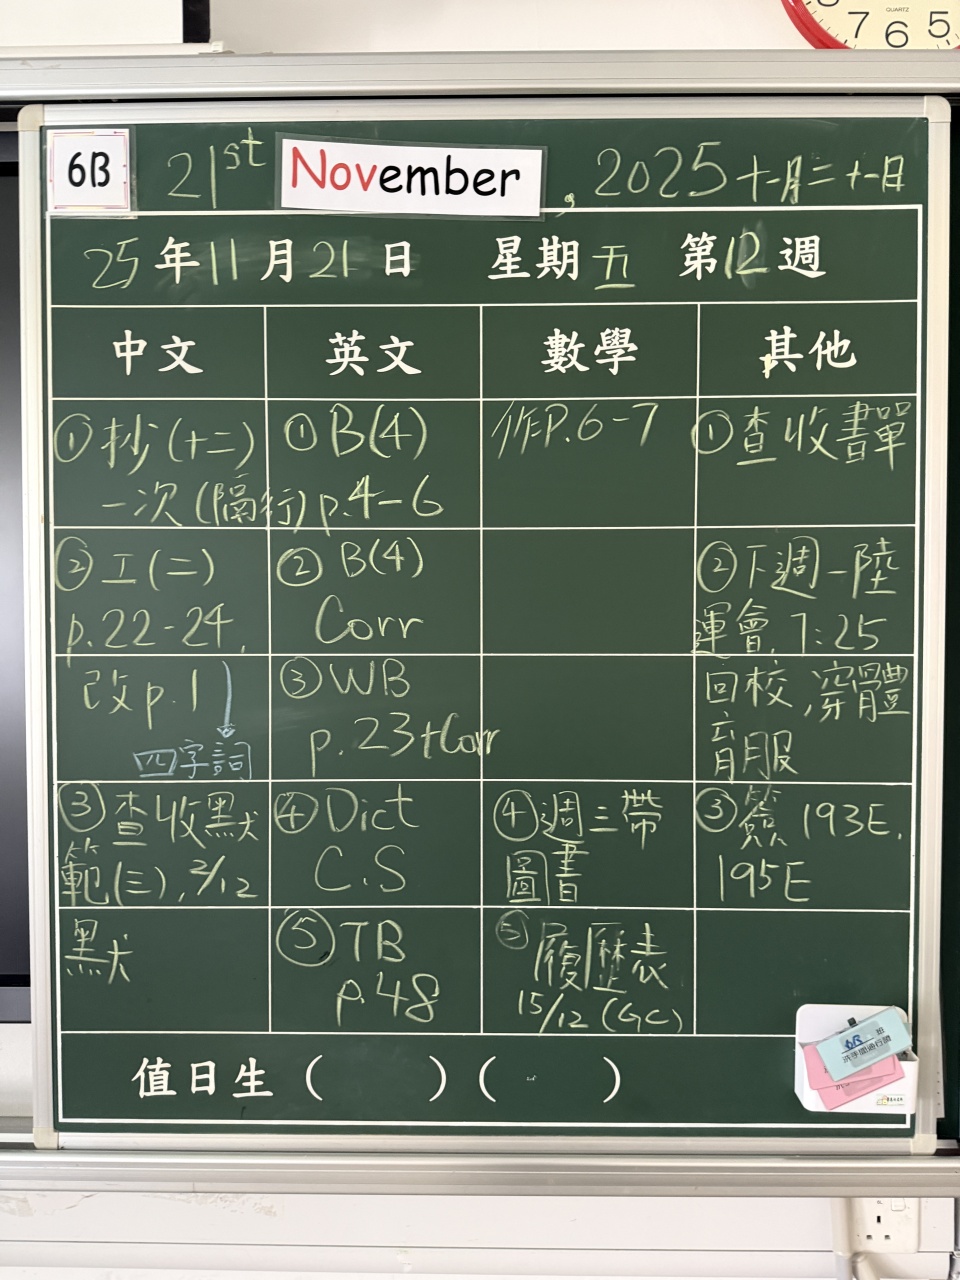 7 6 5
QUARTZ
6B 21st November, 2025 十一月二十一日
25年11月21日 星期五 第12週
中文 英文 數學 其他
①抄(十二)
一次(隔行)
②工(二)
p.22-24,
改p.1
四字詞
③查收默
範(三), 2/12
默
①B(4)
p.4-6
②B(4)
Corr
③WB
p.23+Corr
④Dict
C.S
⑤TB
p.48
作P.6-7
④週三帶
圖書
⑤履歷表
15/12 (GC)
①查收書單
②下週一陸
運會, 7:25
回校,穿體
育服
③簽 193E,
195E
值日生 ( ) ( )
6B 班
洗手間通行證